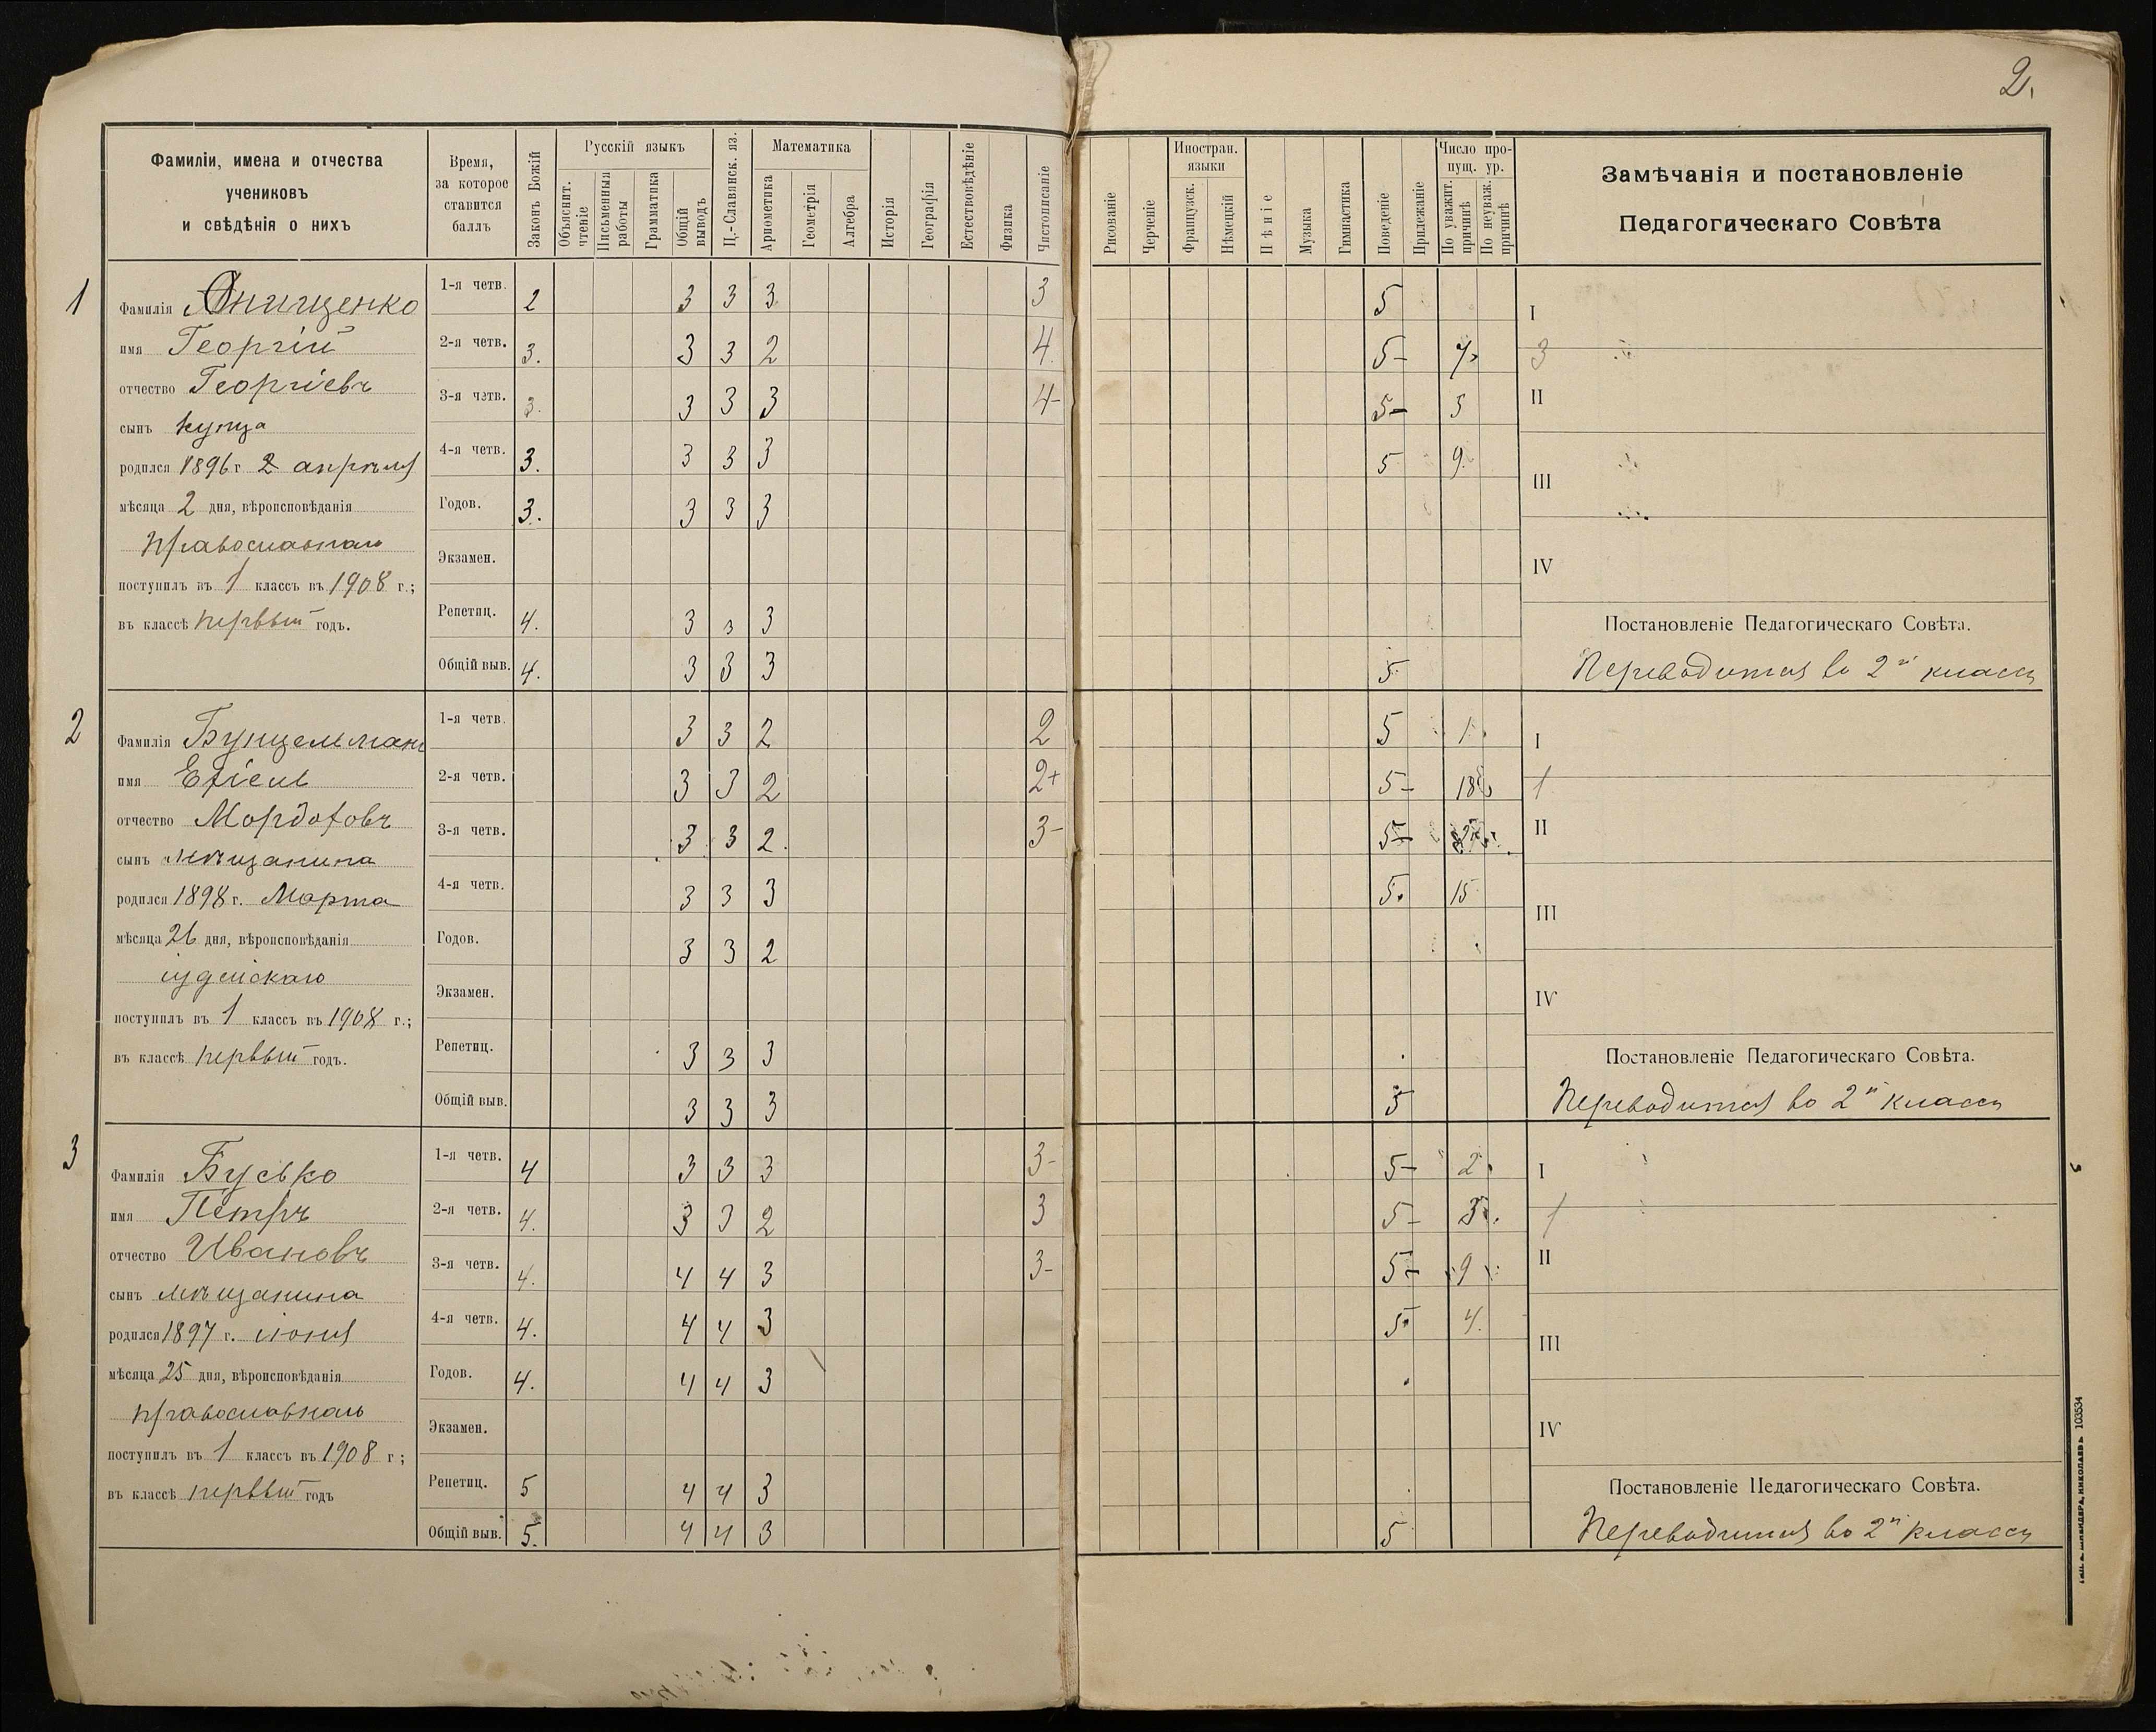 2.
Фамиліи, имена и отчества
учениковъ
и свѣдѣнія о нихъ
Время,
за которое
ставится
баллъ
Законъ Божій
Русскій языкъ
Объяснит.
чтеніе
Письменныя
работы
Грамматика
Общій
выводъ
Ц.-Славянск. яз.
Математика
Ариѳметика
Геометрія
Алгебра
Исторія
Географія
Естествовѣдѣніе
Физика
Чистописаніе
Рисованіе
Черченіе
Иностран.
языки
Французск.
Нѣмецкій
Пѣніе
Музыка
Гимнастика
Поведеніе
Прилежаніе
Число про-
пущ. ур.
По уважит.
причинѣ
По неуваж.
причинѣ
Замѣчанія и постановленіе
Педагогическаго Совѣта
1
Фамилія Онищенко
имя Георгій
отчество Георгіевъ
сынъ купца
родился 1896 г. 2 апрѣля
мѣсяца 2 дня, вѣроисповѣданія
православнаго
поступилъ въ 1 классъ въ 1908 г.;
въ классѣ первый годъ.
1-я четв. 2 3 3 3 3 5
2-я четв. 3. 3 3 2 4. 5- 7
3-я четв. 3. 3 3 3 4- 5- 3
4-я четв. 3. 3 3 3 5 9.
Годов. 3. 3 3 3
Экзамен.
Репетиц. 4. 3 3 3
Общій выв. 4. 3 3 3 5
I
3
II
III
IV
Постановленіе Педагогическаго Совѣта.
Переводится во 2й классъ
2
Фамилія Бунцельманъ
имя Ехіель
отчество Мордоховъ
сынъ мѣщанина
родился 1898 г. Марта
мѣсяца 26 дня, вѣроисповѣданія
іудейскаго
поступилъ въ 1 классъ въ 1908 г.;
въ классѣ первый годъ.
1-я четв. 3 3 2 2 5 1
2-я четв. 3 3 2 2+ 5- 18
3-я четв. 3 3 2 3- 5-
4-я четв. 3 3 3 5 15
Годов. 3 3 2
Экзамен.
Репетиц. 3 3 3
Общій выв. 3 3 3 5
I
1
II
III
IV
Постановленіе Педагогическаго Совѣта.
Переводится во 2й классъ
3
Фамилія Бусько
имя Петръ
отчество Ивановъ
сынъ мѣщанина
родился 1897 г. іюня
мѣсяца 25 дня, вѣроисповѣданія
православнаго
поступилъ въ 1 классъ въ 1908 г;
въ классѣ первый годъ
1-я четв. 4 3 3 3 3- 5- 2
2-я четв. 4. 3 3 2 3 5- 3
3-я четв. 4. 4 4 3 3- 5- 9
4-я четв. 4. 4 4 3 5 4.
Годов. 4. 4 4 3
Экзамен.
Репетиц. 5 4 4 3
Общій выв. 5. 4 4 3 5
I
1
II
III
IV
Постановленіе Педагогическаго Совѣта.
Переводится во 2й классъ
НИКОЛАЕВЪ 103534